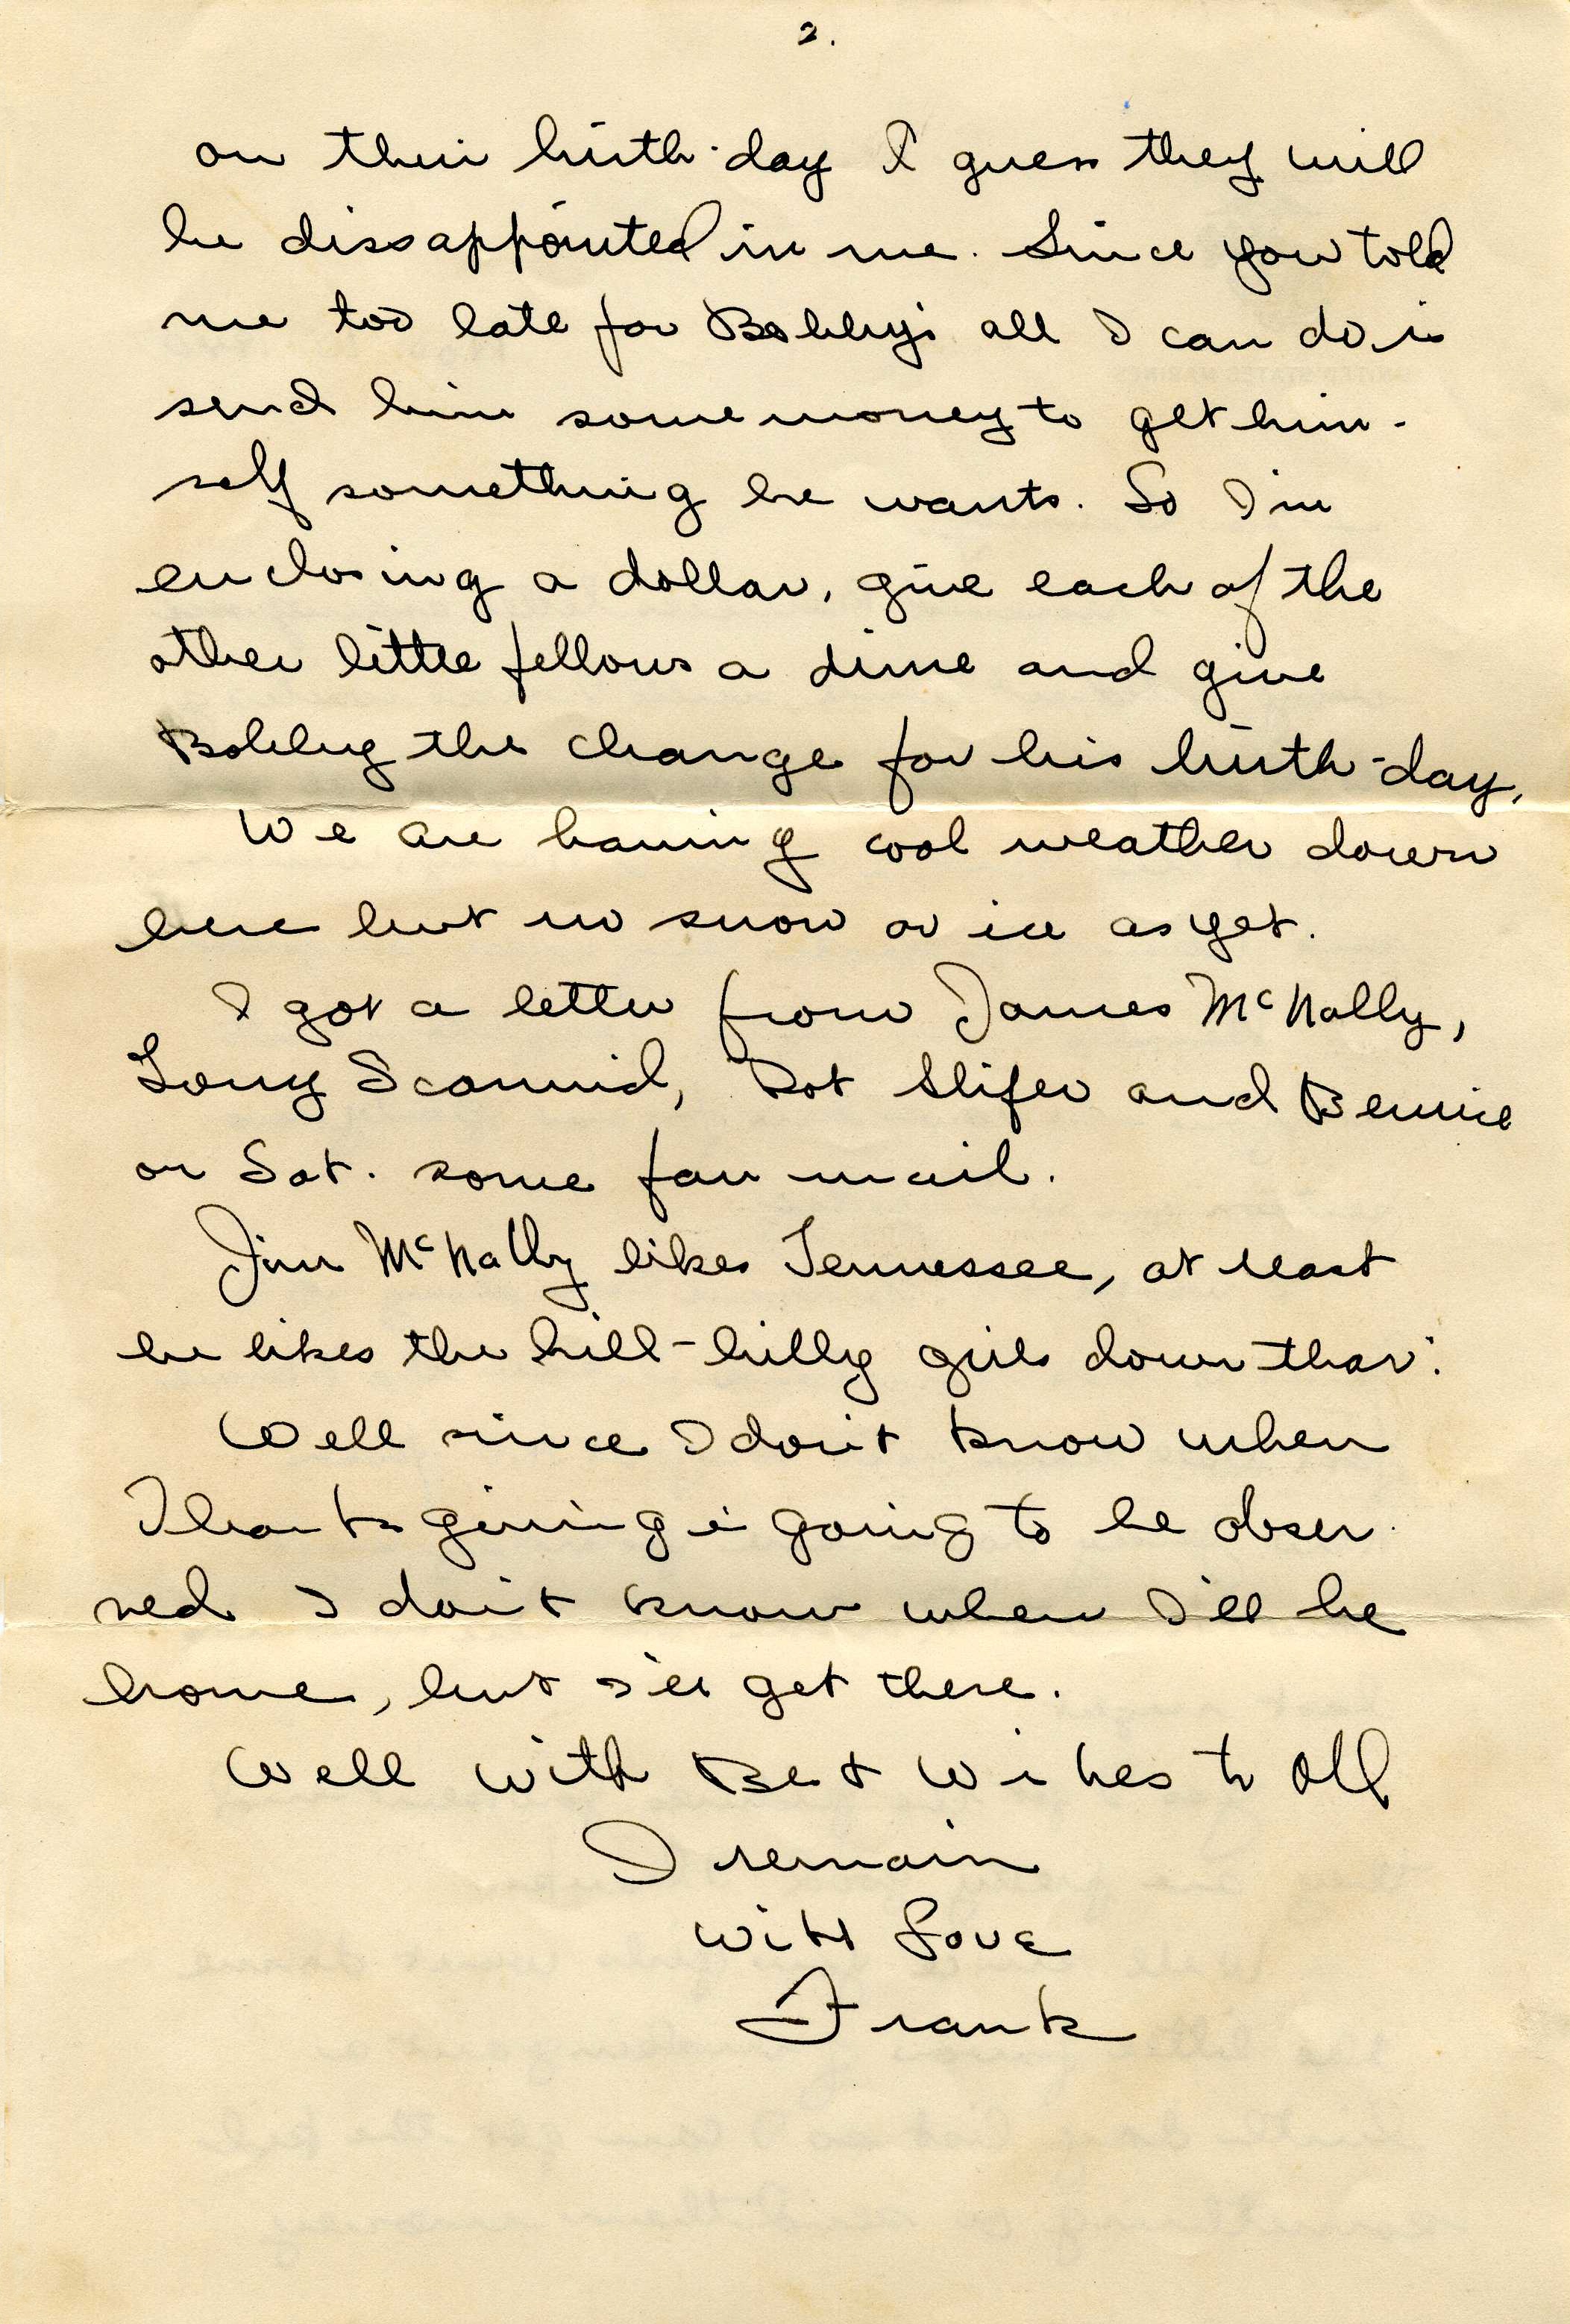 2.
on their birth-day I guess they will
be dissappointed in me. Since you told
me too late for Bobby's all I can do is
send him some money to get him-
self something he wants. So I'm
enclosing a dollar, give each of the
other little fellows a dime and give
Bobby the change for his birth-day,
We are having cool weather down
here but no snow or ice as yet.
I got a letter from James McNally,
Tony Scannid, Dot Slifer and Bernice
on Sat. some fan mail.
Jim McNally likes Tennessee, at least
he likes the hill-billy girls down thar'.
Well since I don't know when
Thanksgiving is going to be obser-
ved I don't know when I'll be
home, but I'll get there.
Well with Best Wishes to All
I remain
With Love
Frank